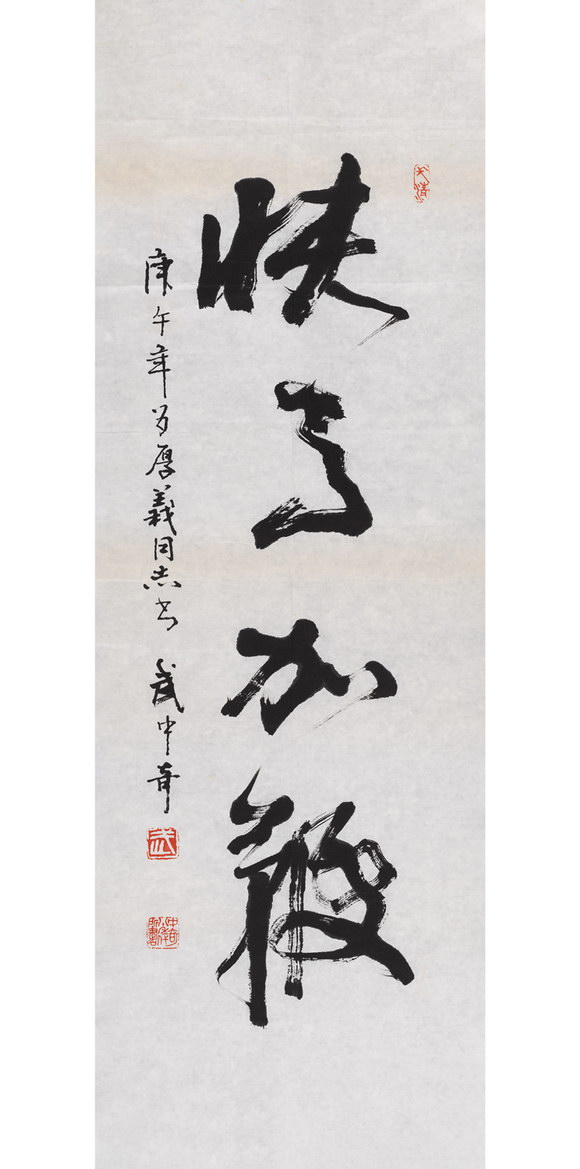 快马加鞭
庚午年为厚義同志书 武中奇
武